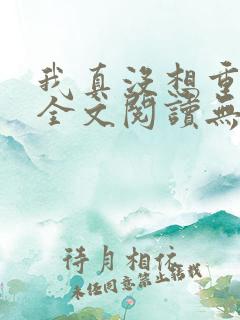 我真没想重
全文閱讀無
待月相依
未经同意禁止转载